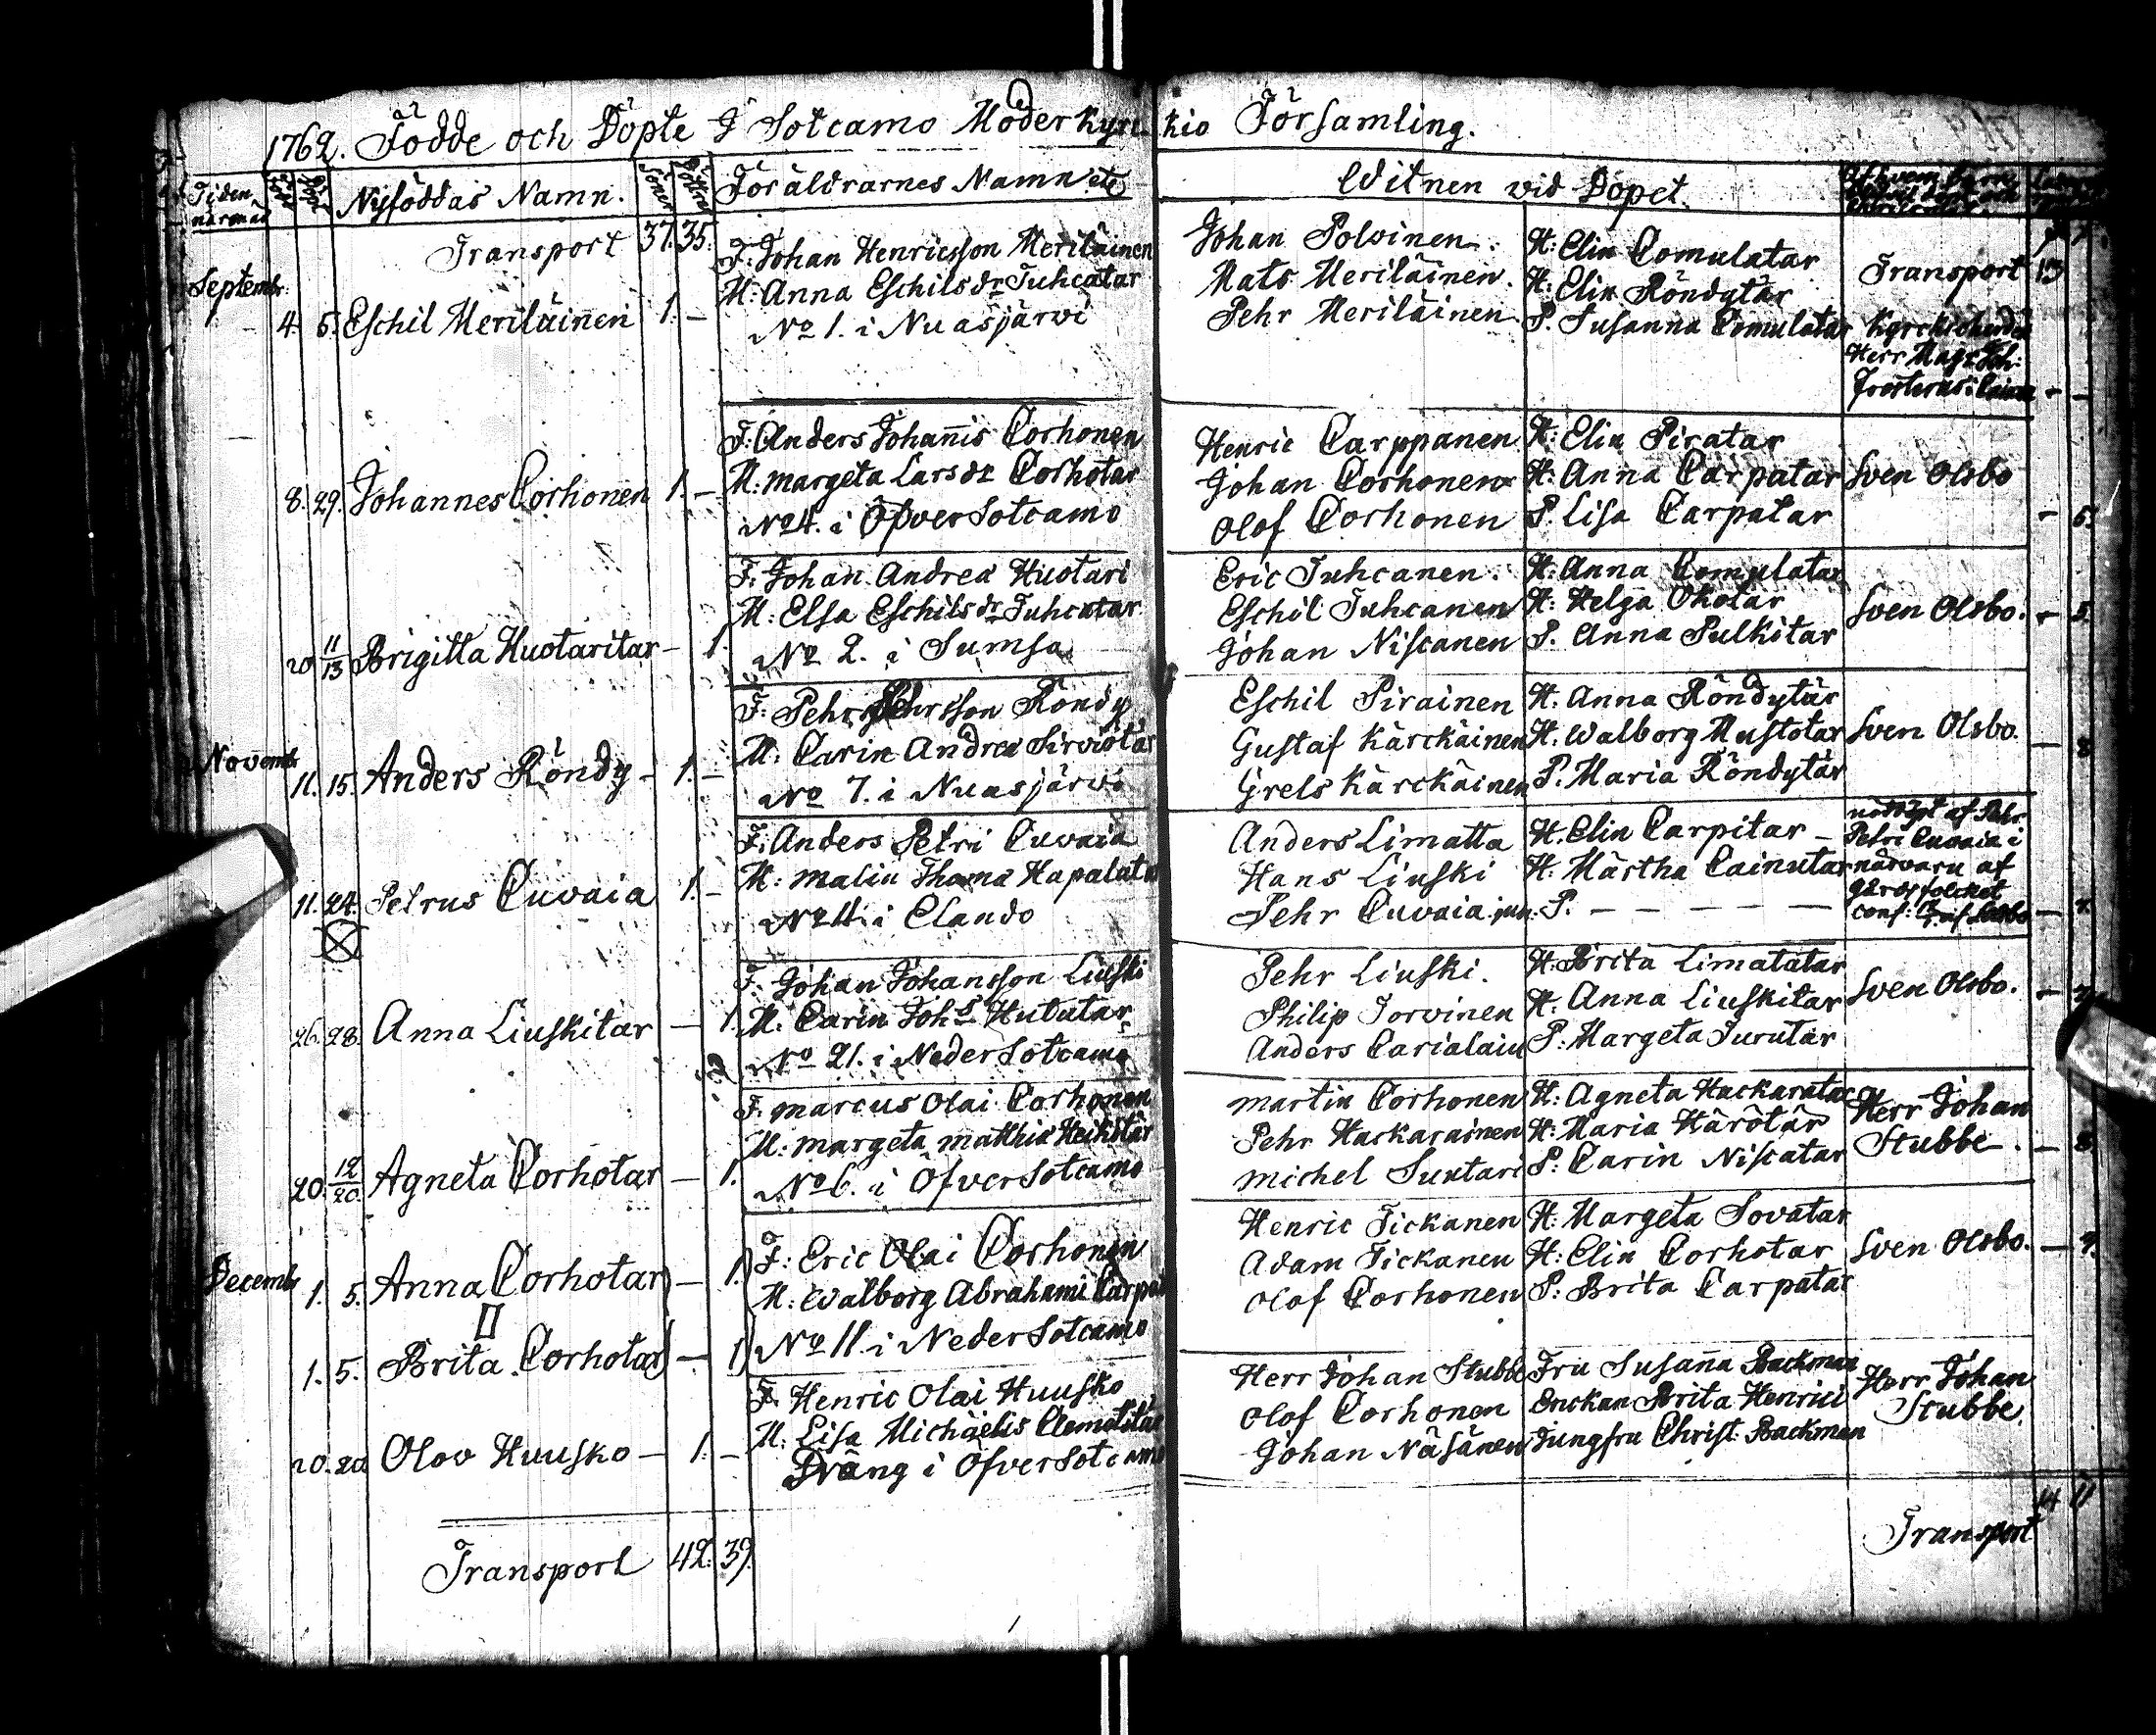 1762. Födde och Döpte I Sotcamo Moderkyrc kio Församling.
Tiden
Född
Döpt
Nyföddas Namn.
Söner
Döttrar
Föräldrarnes Namn etc
Witnen vid Dopet.
Transport 37. 35.
Septembr
4. 5. Eschil Meriläinen 1. —
F: Johan Henricsson Meriläinen
M: Anna Eschils dr Juhcatar
No 1. i Nuasjärvi
Johan Polvinen.
Mats Meriläinen.
Pehr Meriläinen.
H: Elin Comulatar
H: Elin Röndytär
P. Susanna Comulatar
Transport 13
Kyrckioherden
Herr Mag: Joh:
8. 29. Johannes Corhonen 1. —
F: Anders Johannis Corhonen
M: Margeta Lars dr Corhotar
No 4. i Öfver Sotcamo
Henric Carppanen
Johan Corhonen
Olof Corhonen
H: Elin Piratar
H: Anna Carpatar
P. Lisa Carpatar
Sven Olsbo
— 5.
20 11/13 Brigitta Huotaritar — 1.
F: Johan Andreæ Huotari
M: Elsa Eschils dr Juhcatar
No 2. i Sumsa
Eric Juhcanen.
Eschil Juhcanen
Johan Niscanen
H: Anna Comulatar
H: Helga Okotar
P. Anna Pulkitar
Sven Olsbo. — 5.
Novembr
11. 15. Anders Röndy — 1. —
F: Pehr Pehrsson Röndy
M: Carin Andreæ Sirviötär
No 7. i Nuasjärvi
Eschil Pirainen
Gustaf Kärckäinen
Grels Kärckäinen
H. Anna Röndytär
H. Walborg Mustotar
P. Maria Röndytär
Sven Olsbo.
— 8
11. 24. Petrus Cuvaia 1. —
F: Anders Petri Cuvaia
M: Malin Thomæ Hapalatar
No 4. i Clando
Anders Limatta
Hans Liuski
Pehr Cuvaia jun:
H. Elin Carpitar —
H. Märtha Cainutar
P. — — — — —
nöddöpt af Pehr
Petri Cuvaia i
närvaru af
gårdsfolcket
26. 28. Anna Liuskitar — 1.
F: Johan Johansson Liuski
M: Carin Johs Hututar
No 21. i Neder Sotcamo
Pehr Liuski.
Philip Torvinen
Anders Carialain
H: Brita Limatatar
H: Anna Liuskitar
P: Margeta Jurutar
Sven Olsbo.
20. 12/20. Agneta Corhotar — 1.
F: Marcus Olai Corhonen
M: Margeta Matthiæ Heikitär
No 6. i Öfver Sotcamo
Martin Corhonen
Pehr Hackarainen
Michel Suutari
H: Agneta Hackaratar
H: Maria Härötär
P: Carin Niscatar
Herr Johan
Stubbe. — 8.
Decembr
1. 5. Anna Corhotar — 1.
II
1. 5. Brita Corhotar — 1.
F: Eric Olai Corhonen
M: Walborg Abrahami Carpat
No 11. i Neder Sotcamo
Henric Tickanen
Adam Tickanen
Olof Corhonen
H: Margeta Sovatar
H: Elin Corhotar
P: Brita Carpatar
Sven Olsbo. — 4.
20. 20. Olov Huusko — 1. —
F. Henric Olai Huusko
M: Lisa Michaelis Clemetitär
Dräng i Öfver Sotcamo
Herr Johan Stubbe
Olof Corhonen
Johan Näsänen
Fru Susanna Backman
Enckan Brita Henrici
Jungfru Christ. Backman
Herr Johan
Stubbe.
Transport 42. 39.
Transport 14 11